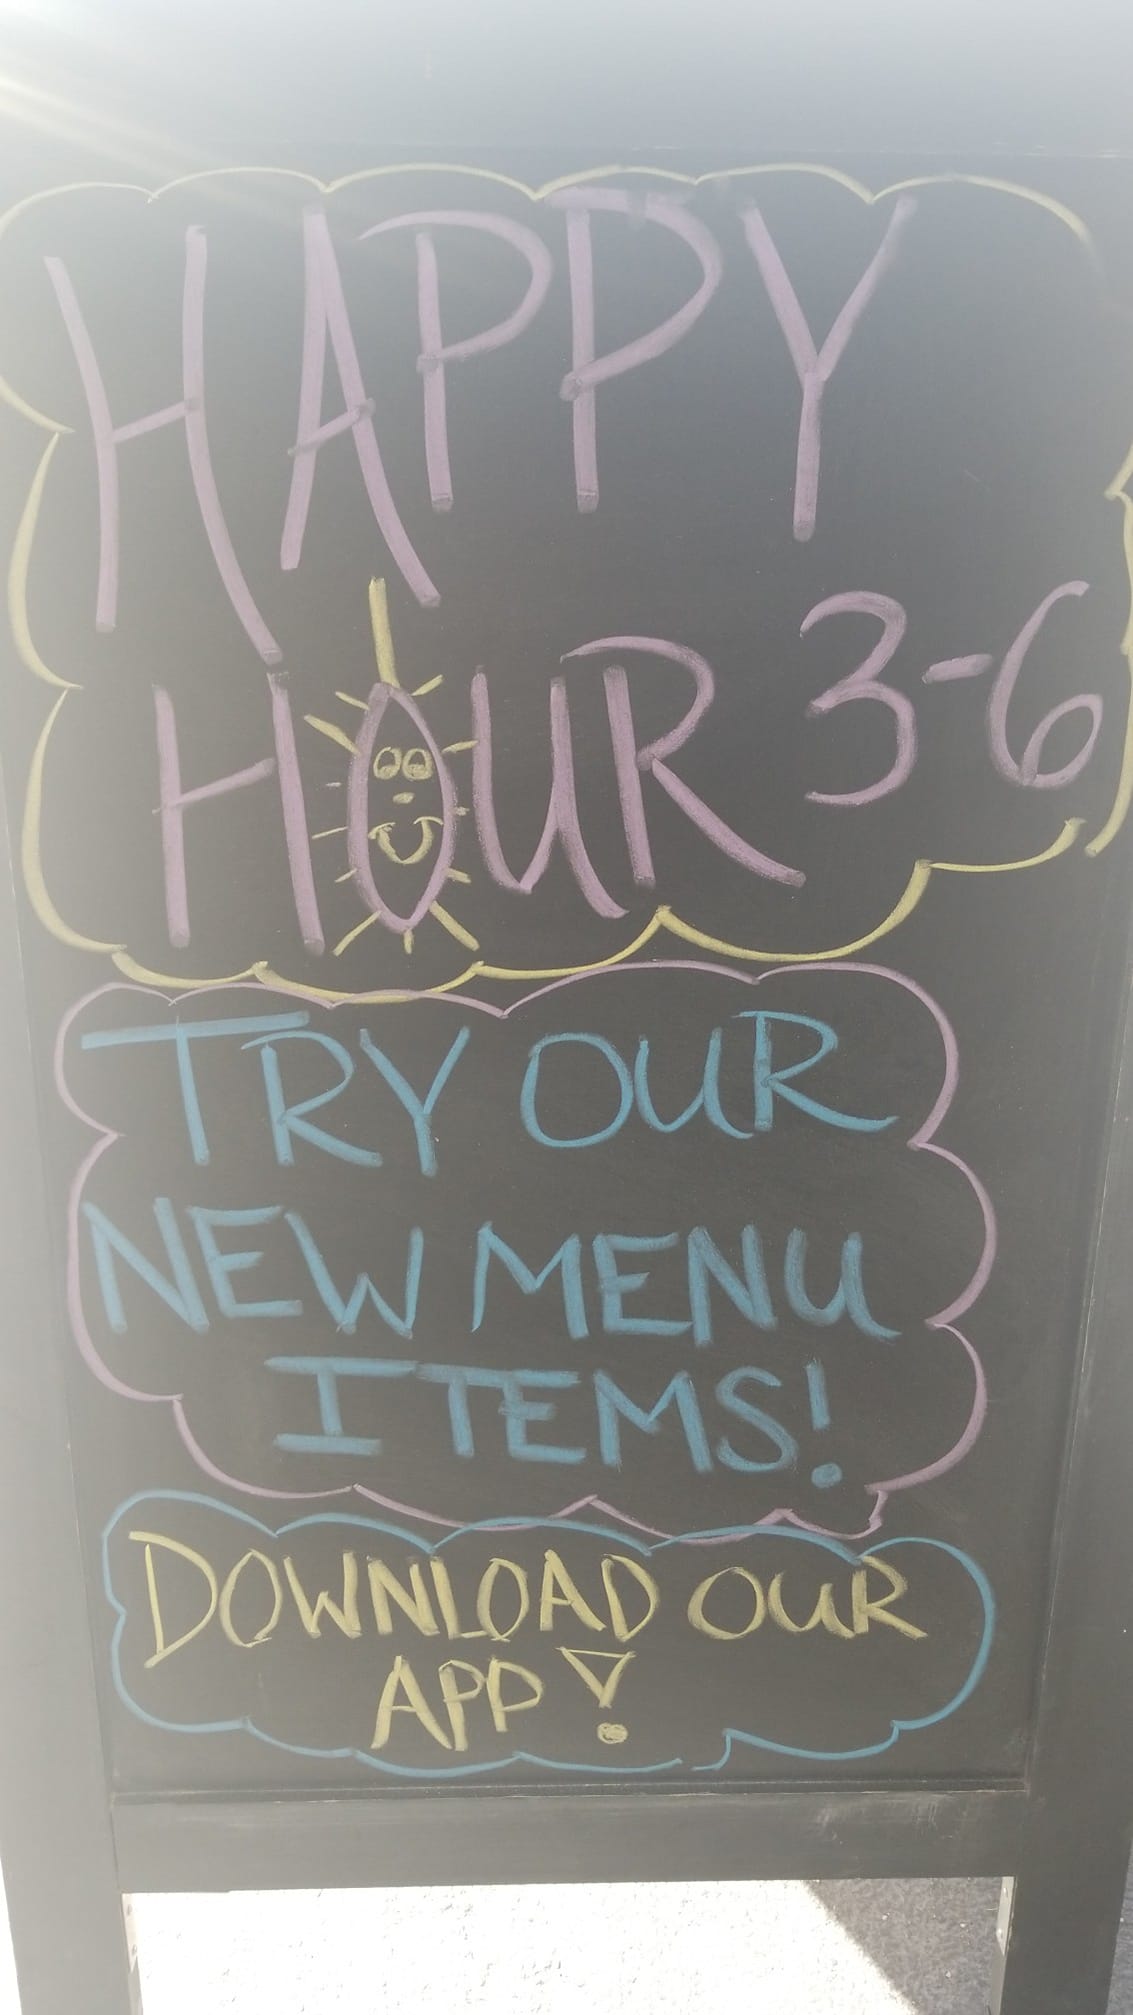 HAPPY
HOUR 3-6
TRY OUR
NEW MENU
ITEMS!
DOWNLOAD OUR
APP!